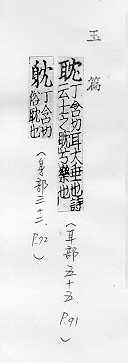 玉篇
耽
丁含切耳大垂也詩
云士之耽兮樂也
(耳部五十五 P.91)
躭
丁含切
俗耽也
(身部三十二、P.72)